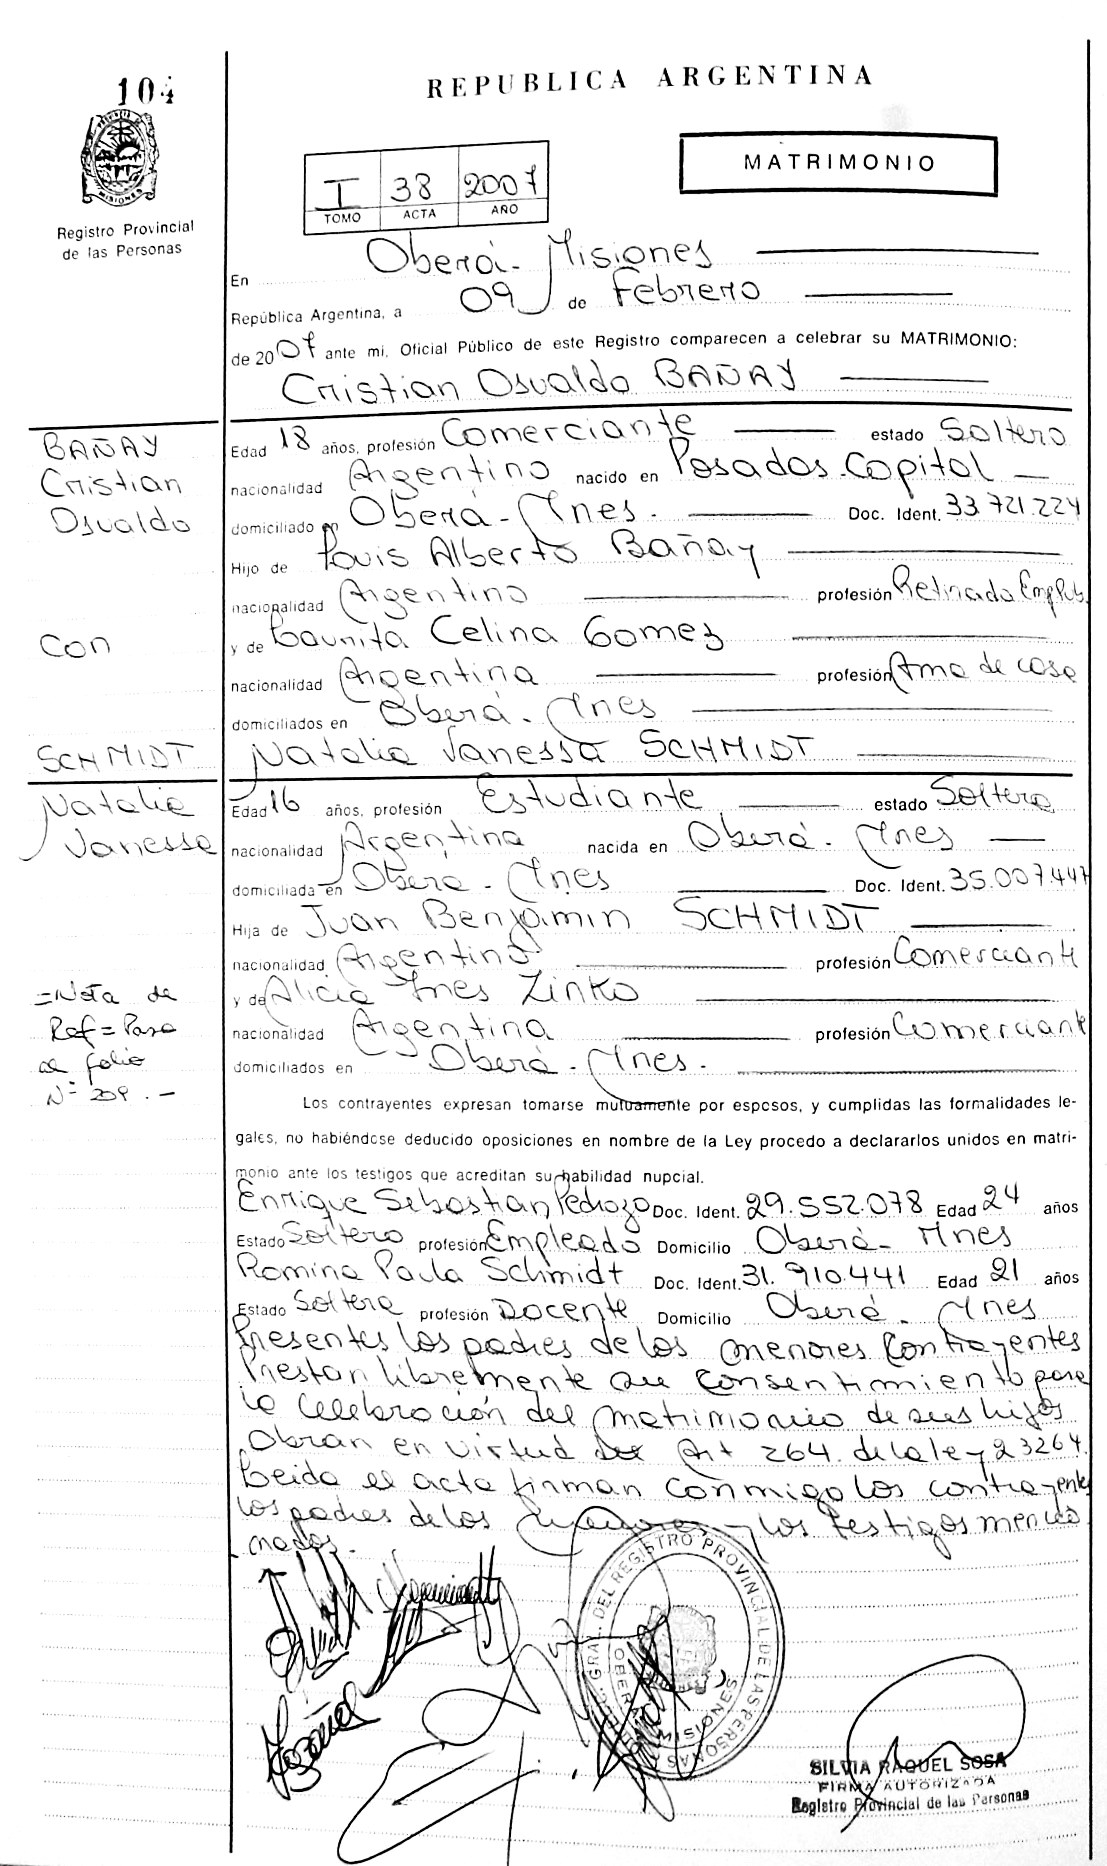 104
REPUBLICA ARGENTINA
MISIONES
Registro Provincial
de las Personas
MATRIMONIO
I 38 2007
TOMO ACTA AÑO
En Oberá - Misiones
República Argentina, a 09 de Febrero
de 2007 ante mi, Oficial Público de este Registro comparecen a celebrar su MATRIMONIO:
Cristian Osvaldo BAÑAY
BAÑAY
Cristian
Osvaldo
Con
SCHMIDT
Natalia
Vanessa
Edad 18 años, profesión Comerciante estado Soltero
nacionalidad Argentino nacido en Posadas. Capital
domiciliado en Oberá - Mnes. Doc. Ident. 33.721.224
Hijo de Louis Alberto Bañay
nacionalidad Argentino profesión Retirado Emp Pub.
y de Launita Celina Gomez
nacionalidad Argentina profesión Ama de casa
domiciliados en Oberá. Mnes
Natalia Vanessa SCHMIDT
Edad 16 años, profesión Estudiante estado Soltera
nacionalidad Argentina nacida en Oberá. Mnes
domiciliada en Oberá - Mnes Doc. Ident. 35.007.447
Hija de Juan Benjamin SCHMIDT
nacionalidad Argentino profesión Comerciante
y de Alicia Ines Zinko
nacionalidad Argentina profesión Comerciante
domiciliados en Oberá. Mnes.
=Nota de
Ref = Pasa
al folio
Nº 209. -
Los contrayentes expresan tomarse mutuamente por esposos, y cumplidas las formalidades le-
gales, no habiéndose deducido oposiciones en nombre de la Ley procedo a declararlos unidos en matri-
monio ante los testigos que acreditan su habilidad nupcial.
Enrique Sebastian Pedrozo Doc. Ident. 29.552.078 Edad 24 años
Estado Soltero profesión Empleado Domicilio Oberá - Mnes
Romina Paola Schmidt Doc. Ident. 31.910.441 Edad 21 años
Estado Soltera profesión Docente Domicilio Oberá. Mnes
Presentes los padres de los menores Contrayentes
Prestan libremente su Consentimiento para
la celebración del matrimonio de sus hijos
Obran en virtud del Art 264. de la ley 23264.
Leida el acta firman conmigo los contrayentes
los padres de los menores y los testigos mencio
nados.
GRAL. DEL REGISTRO PROVINCIAL DE LAS PERSONAS
OBERA MISIONES
SILVIA RAQUEL SOSA
FIRMA AUTORIZADA
Registro Provincial de las Personas